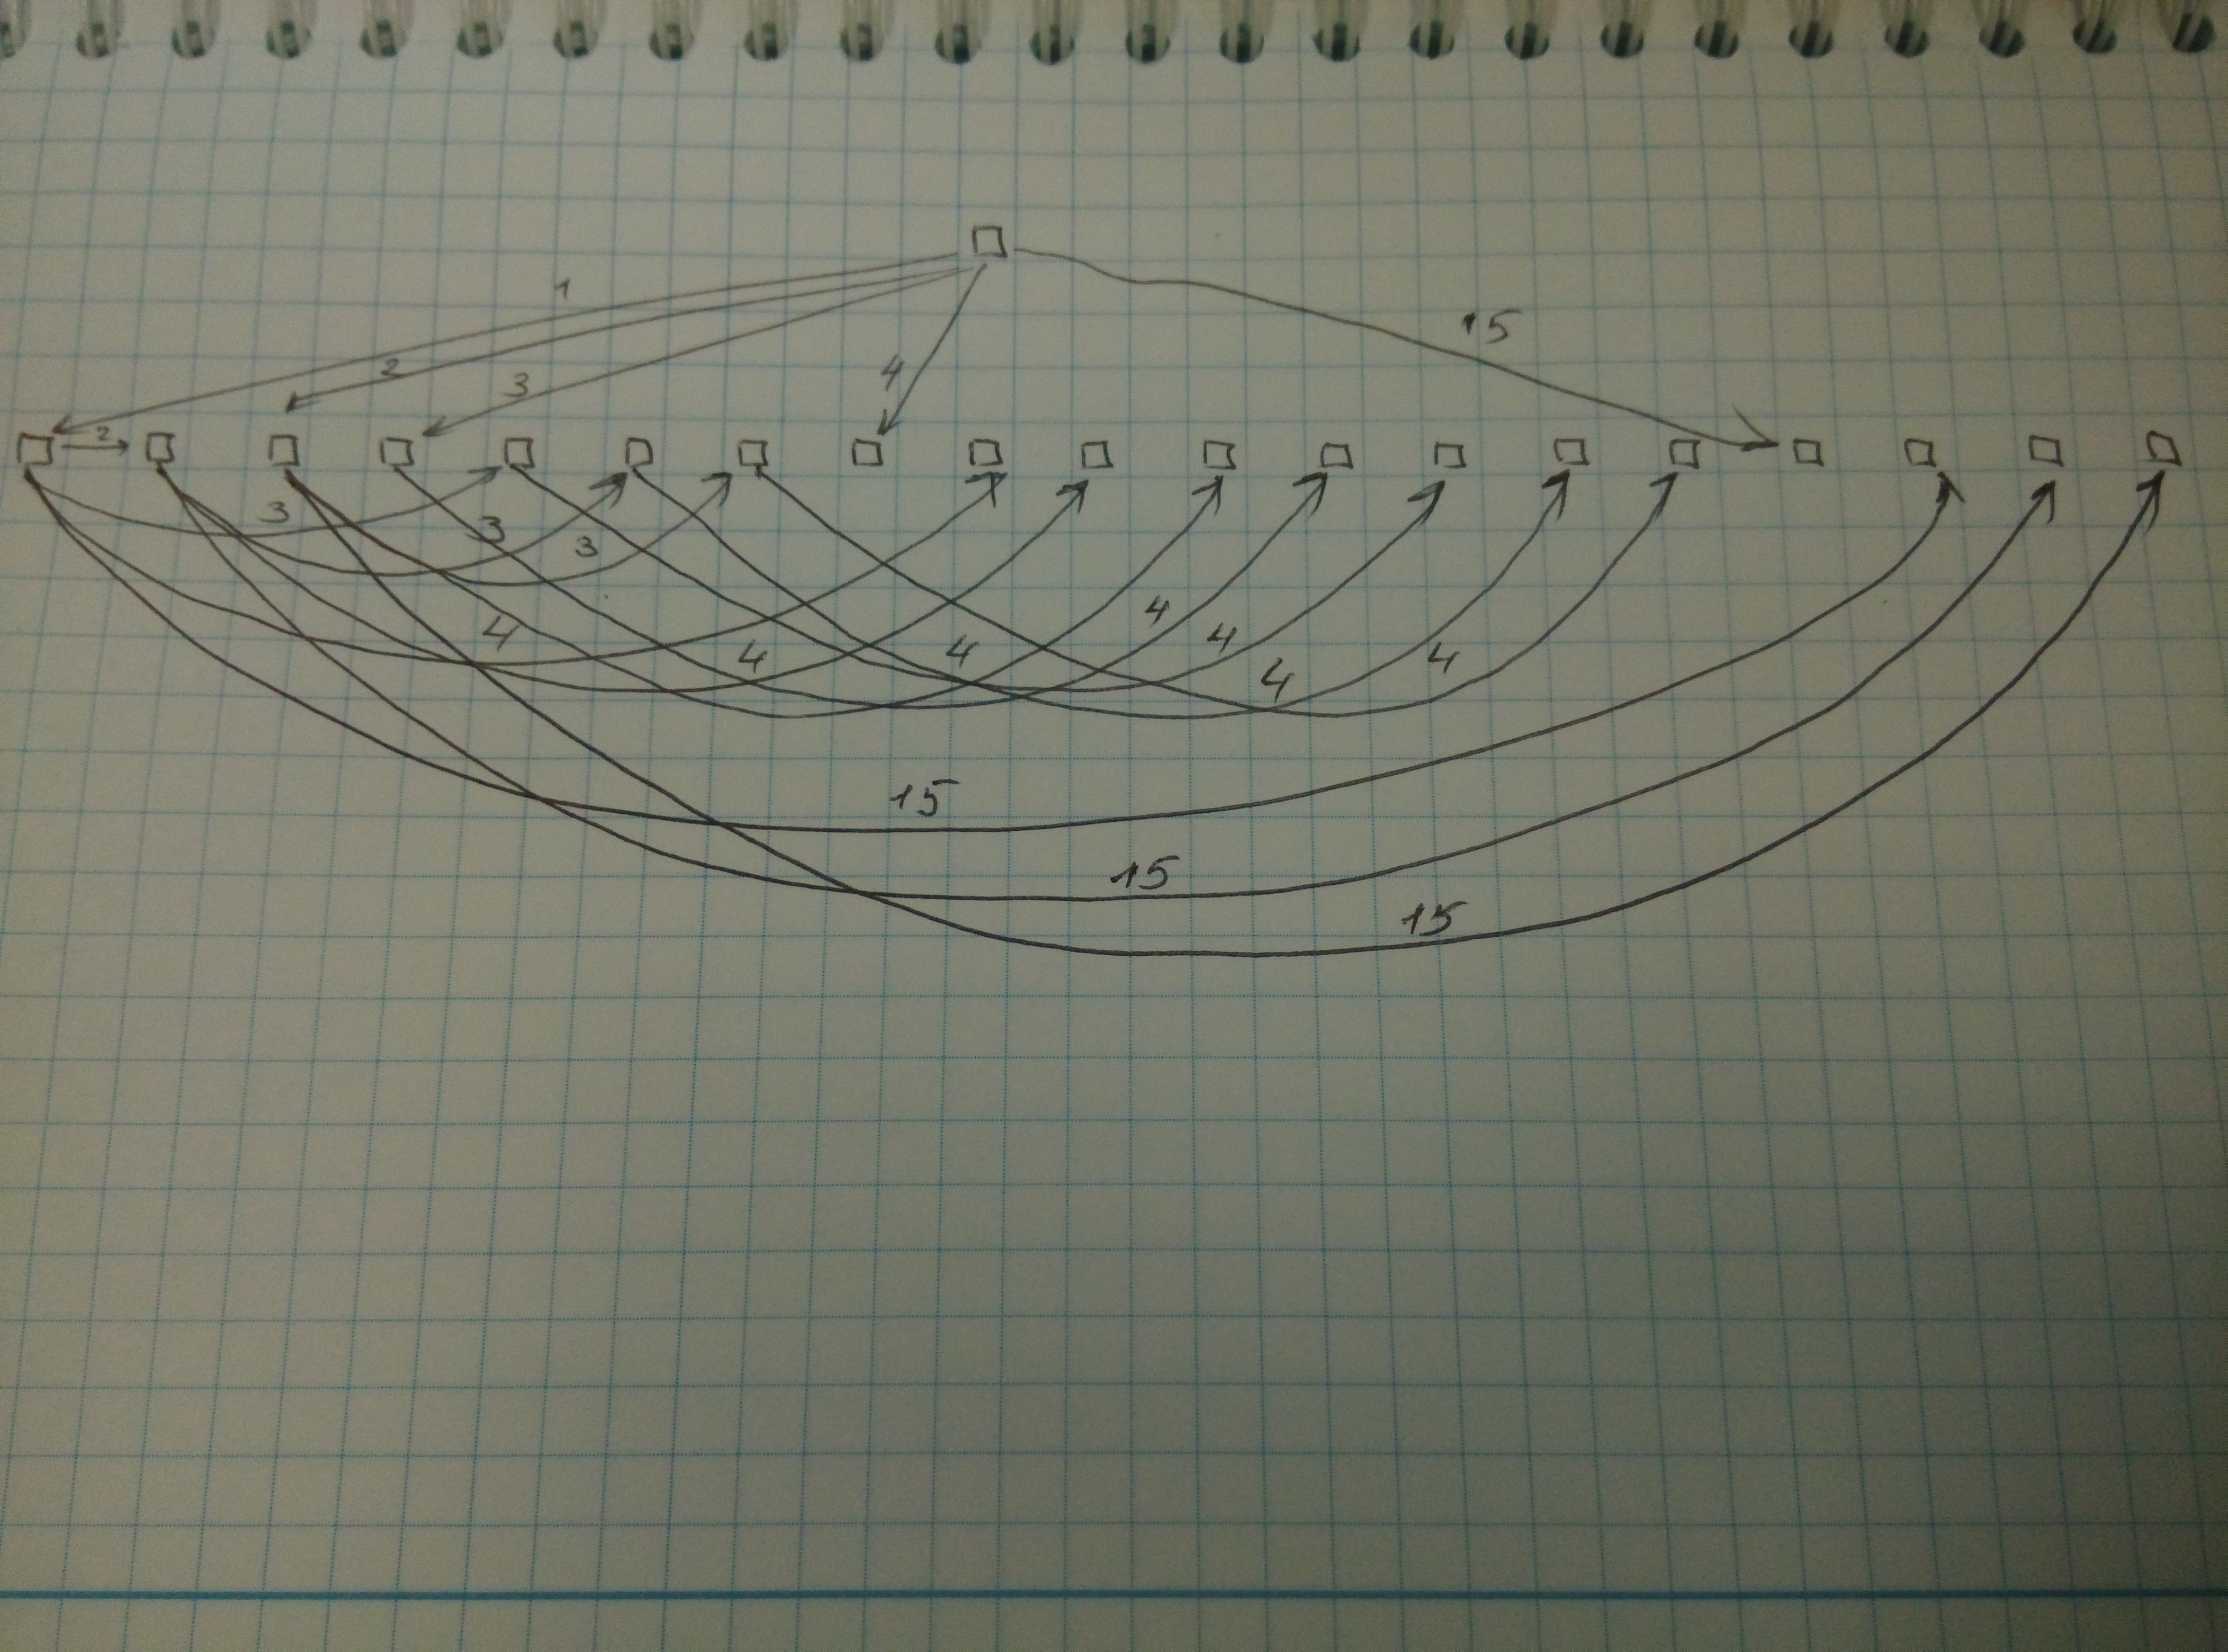 1
15
2
3
4
2
3
3
3
4
4
4
4
4
4
4
15
15
15